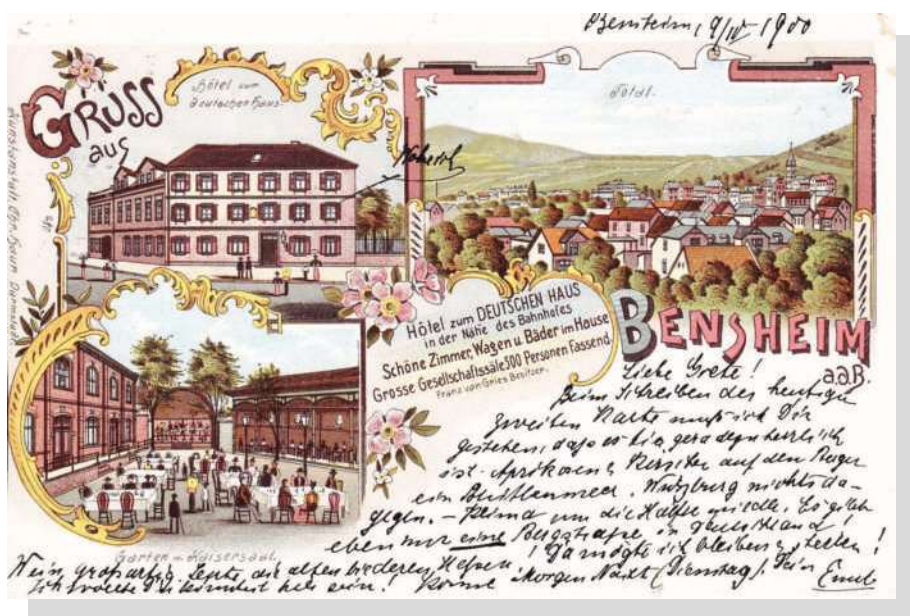 Bensheim, 9/IV 1900
GRUSS
aus
Hôtel zum
Deutschen Haus.
Total.
Hôtel zum DEUTSCHEN HAUS
in der Nähe des Bahnhofes
Schöne Zimmer, Wagen u. Bäder im Hause
Grosse Gesellschaftssäle, 500 Personen Fassend.
Franz von Gries Besitzer.
BENSHEIM
a.d.B.
Liebe Grete!
Beim Schreiben der heutigen
zweiten Karte muss ich Dir
gestehen, dass es hier geradezu herrlich
ist. Aprikosen & auf den
ein Blüthenmeer. Würzburg nichts da-
gegen. – um die Hälfte Es giebt
eben nur eine Bergstrasse in Deutschland!
Da möchte ich bleiben
Garten u. Kaisersaal.
Wein grossartig, Leute die alten biederen Hessen!
Ich wollte Du könntest hier sein! Komme morgen Nacht (Dienstag). Dein Emil